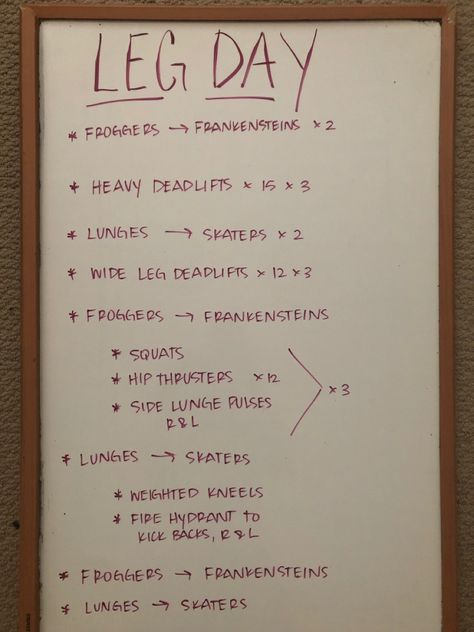 LEG DAY
* FROGGERS → FRANKENSTEINS × 2
* HEAVY DEADLIFTS × 15 × 3
* LUNGES → SKATERS × 2
* WIDE LEG DEADLIFTS × 12 × 3
* FROGGERS → FRANKENSTEINS
* SQUATS
* HIP THRUSTERS × 12
× 3
* SIDE LUNGE PULSES
R & L
* LUNGES → SKATERS
* WEIGHTED KNEELS
* FIRE HYDRANT TO
KICK BACKS, R & L
* FROGGERS → FRANKENSTEINS
* LUNGES → SKATERS